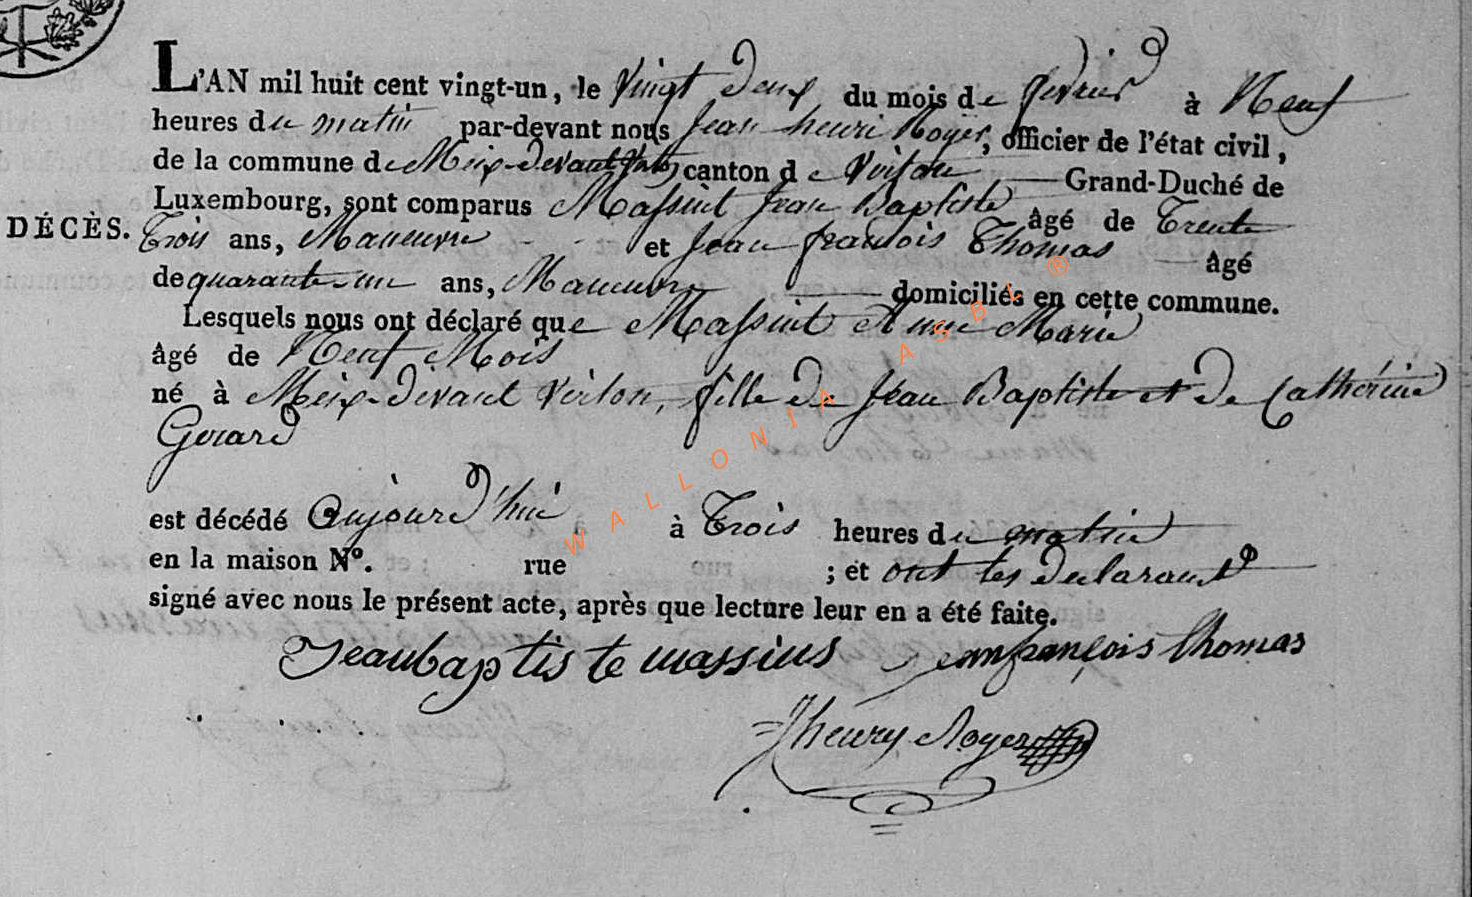 L'AN mil huit cent vingt-un, le vingt deux du mois de fevrier à Neuf
heures du matin par-devant nous Jean henri Royer, officier de l'état civil,
de la commune de Meix-devant-virton canton de Virton Grand-Duché de
Luxembourg, sont comparus Massint Jean Baptiste âgé de Trente
DÉCÈS. Trois ans, Maneuvre et Jean francois Thomas âgé
de quarante-un ans, Maneuvre domiciliés en cette commune.
Lesquels nous ont déclaré que Massint Anne Marie
âgé de Neuf Mois
né à Meix-devant virton, fille de Jean Baptiste et de Catherine
Gerard
est décédé aujourd'hui à à Trois heures du matin
en la maison Nº. rue ; et ont les declarants
signé avec nous le présent acte, après que lecture leur en a été faite.
Jeanbaptiste massins Jeanfrançois thomas
Jhenry Royer
WALLONIA ASBL ®